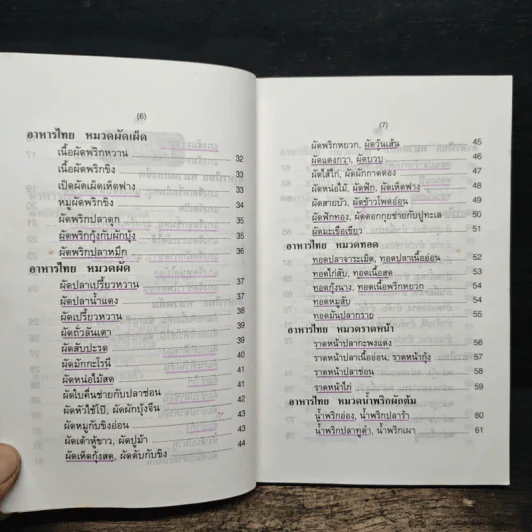 (6)
อาหารไทย หมวดผัดเผ็ด
เนื้อผัดพริกหวาน 32
เนื้อผัดพริกขิง 33
เป็ดผัดเผ็ดเห็ดฟาง 33
หมูผัดพริกขิง 34
ผัดพริกปลาดุก 35
ผัดพริกกุ้งกับผักบุ้ง 35
ผัดพริกปลาหมึก 36
อาหารไทย หมวดผัด
ผัดปลาเปรี้ยวหวาน 37
ผัดปลาน้ำแดง 37
ผัดเปรี้ยวหวาน 38
ผัดถั่วลันเตา 39
ผัดสับปะรด 40
ผัดมักกะโรนี 40
ผัดหน่อไม้สด 41
ผัดใบคื่นช่ายกับปลาช่อน 42
ผัดหัวไช้โป๊, ผัดผักบุ้งจีน 43
ผัดหมูกับขิงอ่อน 43
ผัดเต้าหู้ขาว, ผัดปูม้า 43
ผัดเห็ดกุ้งสด, ผัดตับกับขิง 44
(7)
ผัดพริกหยวก, ผัดวุ้นเส้น 45
ผัดแตงกวา, ผัดบวบ 46
ผัดไส้ไก่, ผัดผักกาดดอง 47
ผัดหน่อไม้, ผัดฟัก, ผัดเห็ดฟาง 48
ผัดสายบัว, ผัดข้าวโพดอ่อน 49
ผัดฟักทอง, ผัดดอกกุยช่ายกับปูทะเล 50
ผัดมะเขือเขียว 51
อาหารไทย หมวดทอด
ทอดปลาจาระเม็ด, ทอดปลาเนื้ออ่อน 52
ทอดไก่สับ, ทอดเนื้อสด 53
ทอดกุ้งนาง, ทอดเนื้อพริกหยวก 54
ทอดหมูสับ 54
ทอดมันปลากราย 55
อาหารไทย หมวดราดหน้า
ราดหน้าปลากะพงแดง 56
ราดหน้าปลาเนื้ออ่อน, ราดหน้ากุ้ง 57
ราดหน้าปลาช่อน 58
ราดหน้าไก่ 59
อาหารไทย หมวดน้ำพริกผักต้ม
น้ำพริกอ่อง, น้ำพริกปลาร้า 60
น้ำพริกปลาทูตำ, น้ำพริกเผา 61